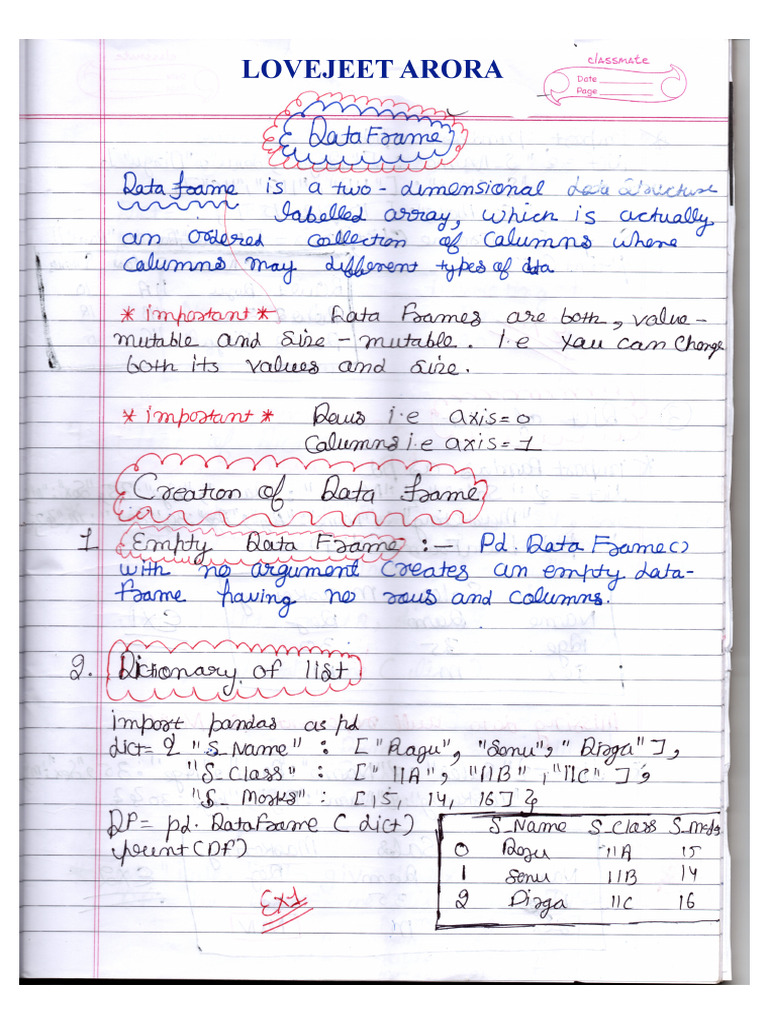 LOVEJEET ARORA
classmate
Date
Page
DataFrame
Data frame is a two - dimensional data structure
labelled array, which is actually
an ordered collection of Calumns where
calumns may different types of data
* important * Data Frames are both, value-
mutable and Size - mutable. I.e You can Change
both its values and size.
* important * Rows i.e axis = 0
Calumns i.e axis = 1
Creation of Data frame
1 Empty Data Frame :- Pd. Data Frame()
with no argument Creates an empty data-
frame having no rows and columns.
2. Dictionary of list
import pandas as pd
dict = { "S_Name" : ["Ragu", "Sonu", "Dirga"],
"S_Class" : ["11A", "11B", "11C"],
"S_Marks" : [15, 14, 16] }
DF = pd. DataFrame ( dict )
print (Df)
S_Name S_Class S_Marks
0 Ragu 11A 15
1 Sonu 11B 14
2 Dirga 11C 16
Ex1